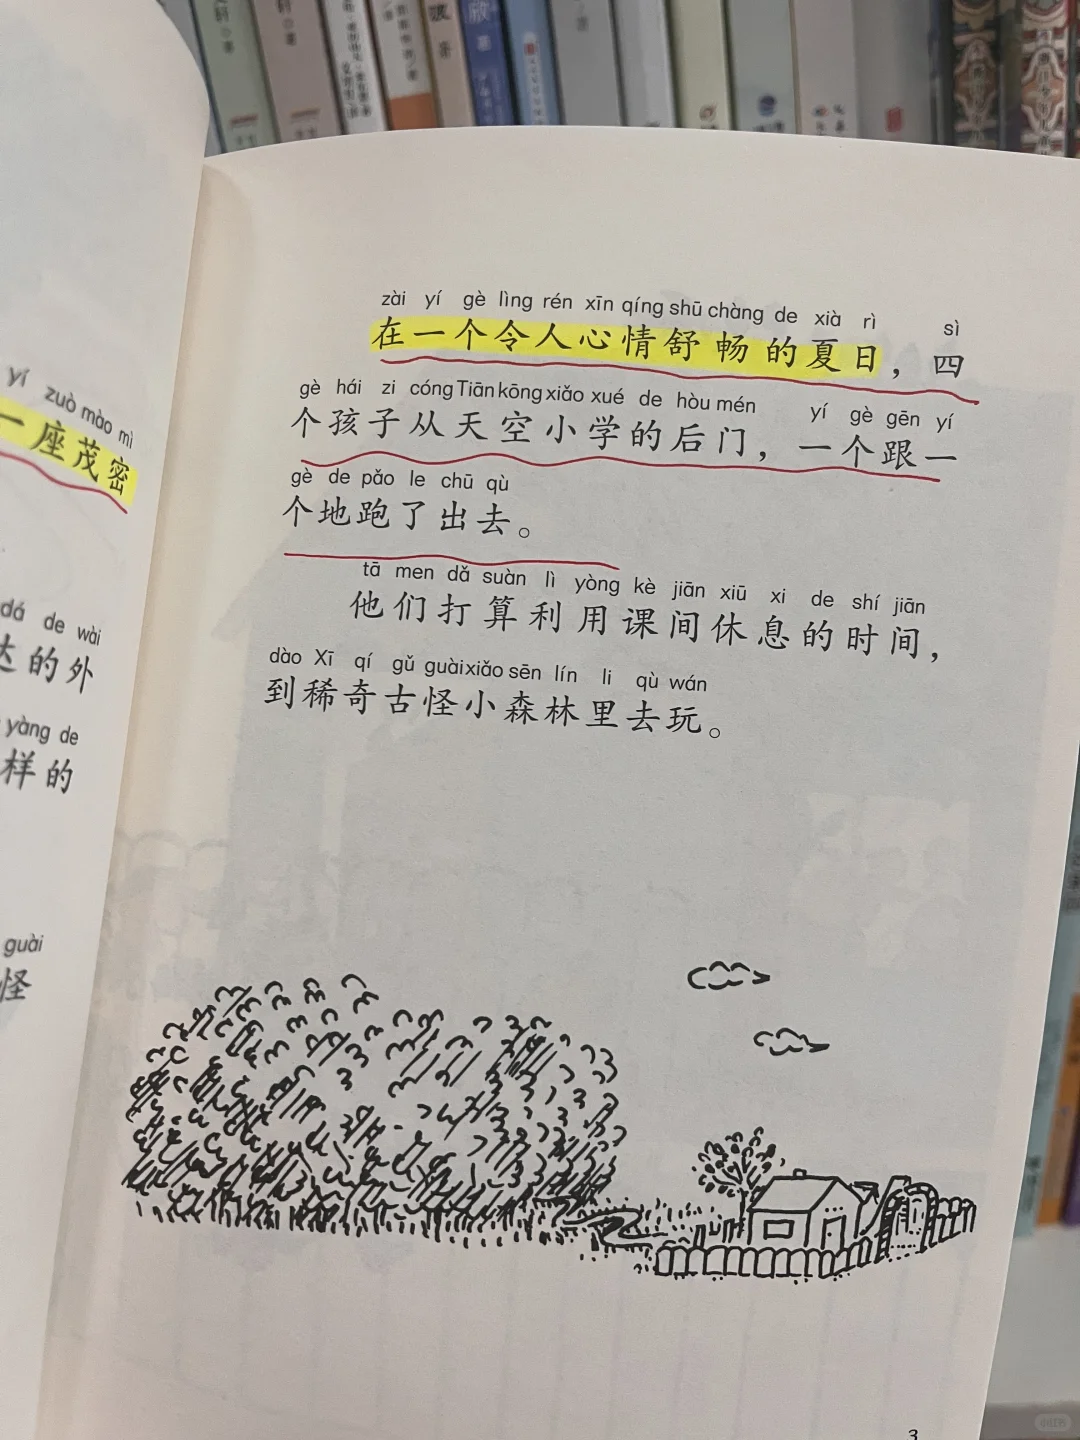 yí zuò mào mì
一座茂密
dá de wài
达的外
yàng de
样的
guài
怪
zài yí gè lìng rén xīn qíng shū chàng de xià rì sì
在一个令人心情舒畅的夏日，四
gè hái zi cóng Tiān kōng xiǎo xué de hòu mén yí gè gēn yí
个孩子从天空小学的后门，一个跟一
gè de pǎo le chū qù
个地跑了出去。
tā men dǎ suàn lì yòng kè jiān xiū xi de shí jiān
他们打算利用课间休息的时间，
dào Xī qí gǔ guài xiǎo sēn lín li qù wán
到稀奇古怪小森林里去玩。
3